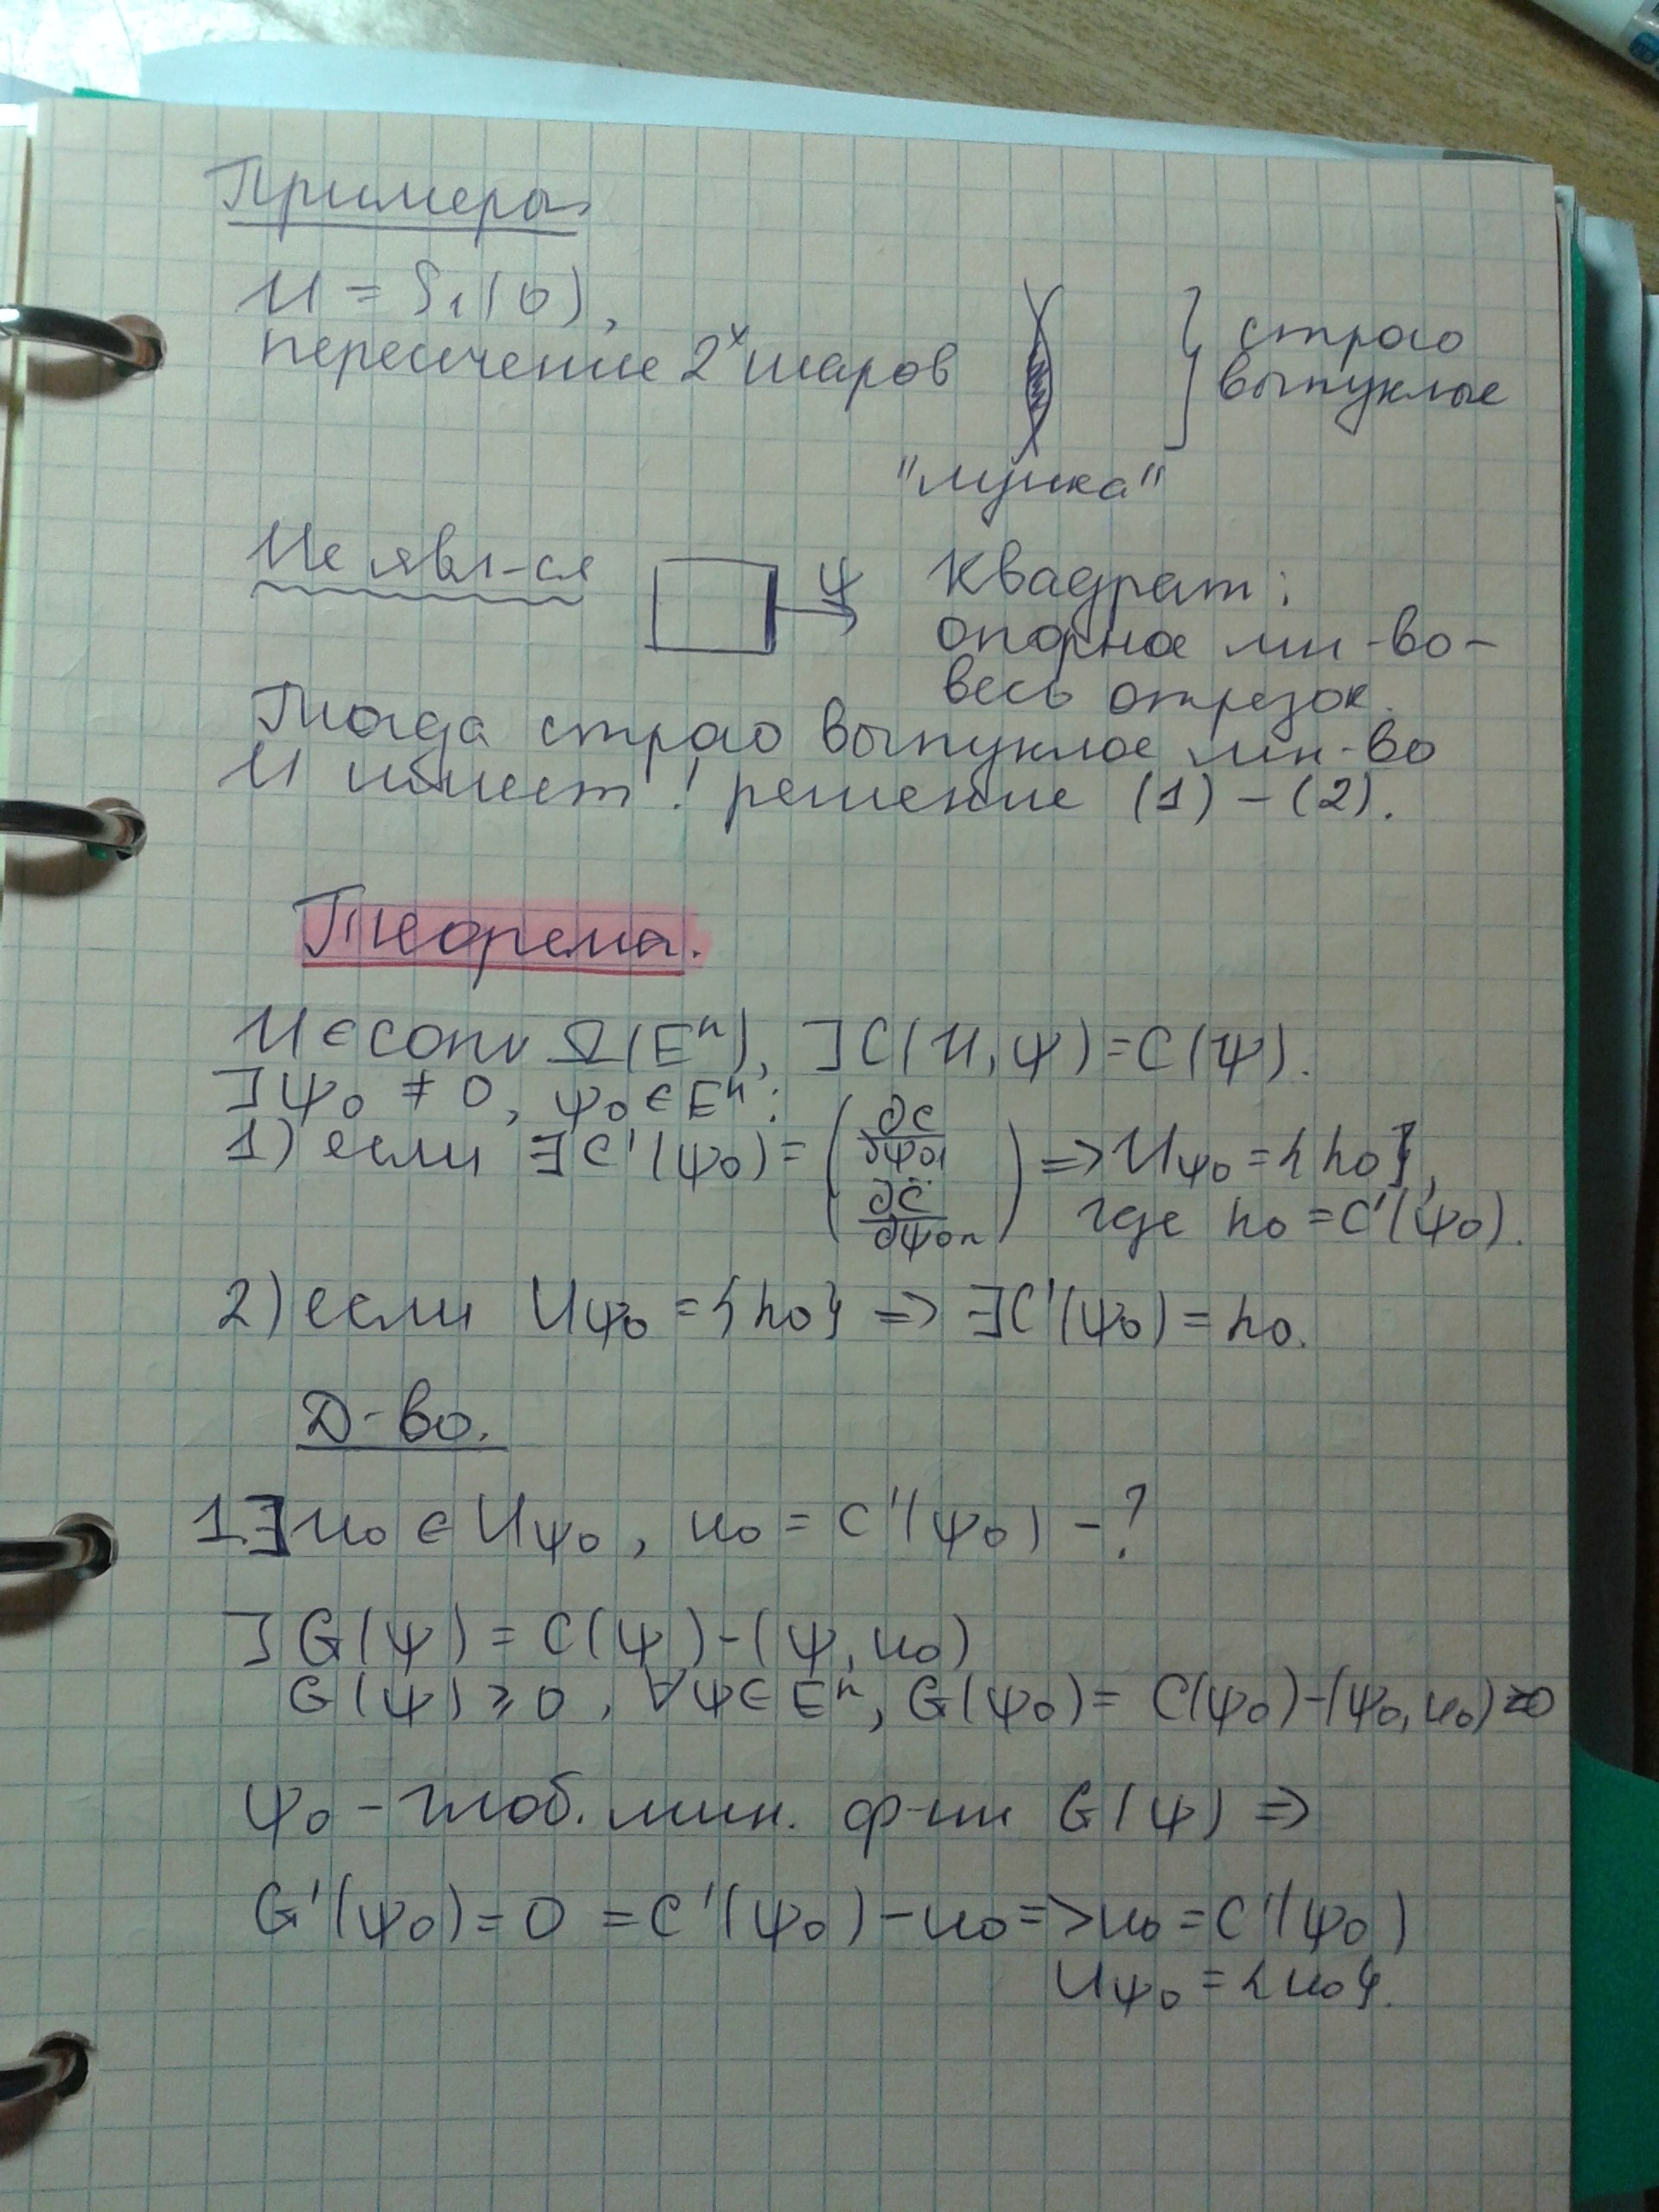 Примеры
U = S₁(0),
пересечение 2ˣ шаров
строго
выпуклые
"лунка"
Не явл-ся
ψ
Квадрат:
опорное мн-во-
весь отрезок.
Тогда строго выпуклое мн-во
U имеет ! решение (1) – (2).
Теорема.
U ∈ conv Ω(Eⁿ), ]C(U, ψ) = C(ψ).
]ψ₀ ≠ 0, ψ₀ ∈ Eⁿ:
1) если ∃C'(ψ₀) = (∂C/∂ψ₀₁ ... ∂C/∂ψ₀ₙ) => Uψ₀ = {h₀},
где h₀ = C'(ψ₀).
2) если Uψ₀ = {h₀} => ∃C'(ψ₀) = h₀.
Д-во.
1. ∃ u₀ ∈ Uψ₀, u₀ = C'(ψ₀) - ?
] G(ψ) = C(ψ) - (ψ, u₀)
G(ψ) ≥ 0, ∀ψ ∈ Eⁿ, G(ψ₀) = C(ψ₀) - (ψ₀, u₀) = 0
ψ₀ – глоб. мин. ф-ии G(ψ) =>
G'(ψ₀) = 0 = C'(ψ₀) - u₀ => u₀ = C'(ψ₀)
Uψ₀ = {u₀}.